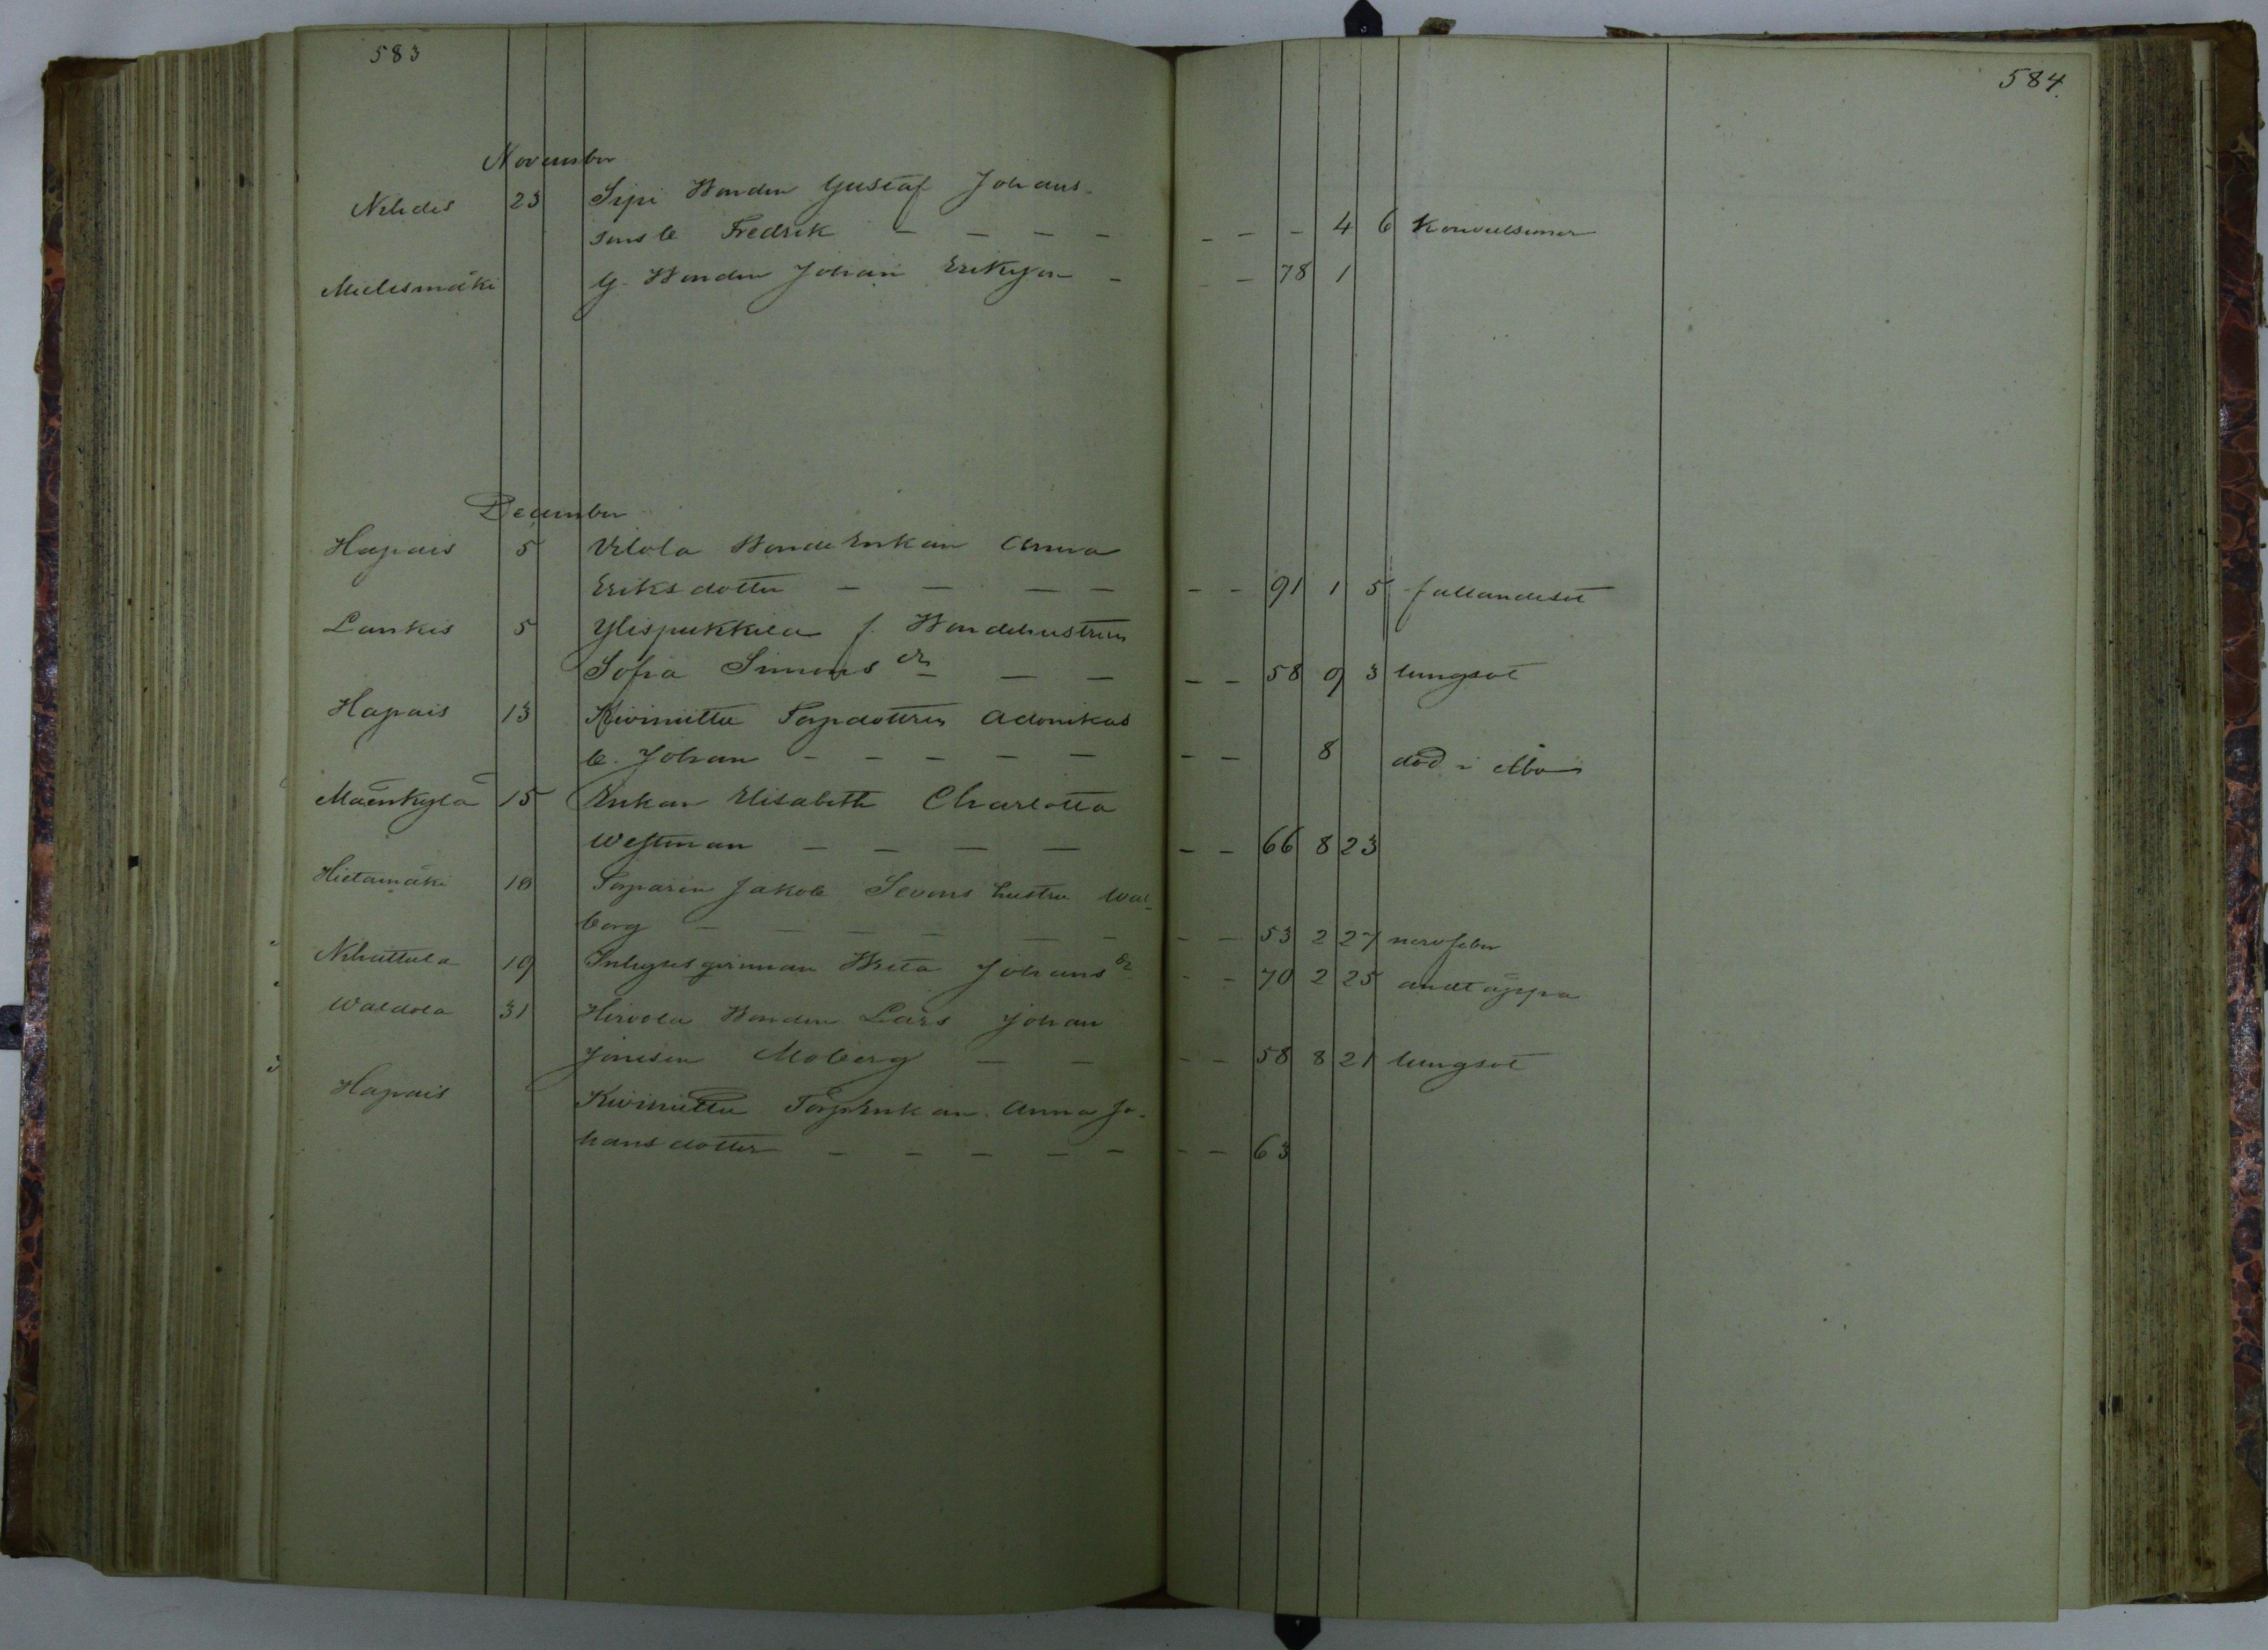 583
584.
November
Nihdis 23 Sipi Bonden Gustaf Johans-
sons b Fredrik - - - - - - - 4 6 Konvulsioner
Mielismäki G. Bonden Johan Eriksson - - - 78 1
December
Hapais 5 Vilola Bonde Enkan Anna
Eriksdotter - - - - - - 91 1 5 fallandesot
Lankis 5 Ylispukkila f. Bondehustrun
Sofia Simons dr - - - - 58 9 3 lungsot
Hapais 13 Kiviniittu Torpdottren Adonikas
b. Johan - - - - - - - 8 död i Åbo
Mäenkylä 15 Enkan Elisabeth Charlotta
Westman - - - - - - 66 8 23
Hietamäki 18 Torparen Jakob Sevons hustru Wal-
borg - - - - - - - - 53 2 27 nervfeber
Nihattula 19 Inhyses qvinnan Brita Johans dr - - 70 2 25 andtäppa
Waldola 31 Hirvola Bonden Lars Johan
Jonsson Moberg - - - - 58 8 21 lungsot
Hapais Kiviniittu Torp Enkan Anna Jo-
hansdotter - - - - - - - 63